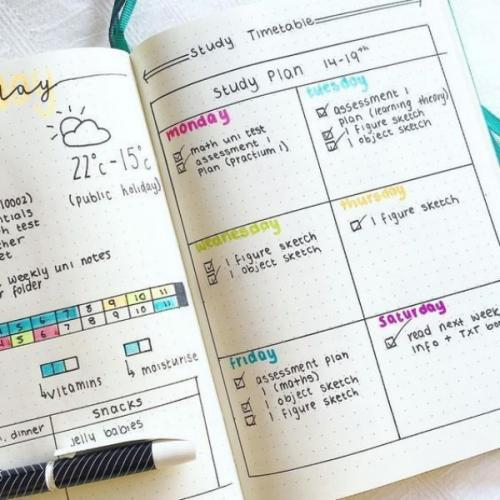 day
22°c - 15°c
(public holiday)
10002)
test
weekly uni notes
folder
5 6 7 8 9 10 11
4 5 6 7 8 9 10 11
vitamins
moisturise
snacks
dinner
jelly babies
Study Timetable
Study Plan 14-19th
monday
math uni test
assessment 1
plan (practium 1)
tuesday
assessment 1
plan (learning theory)
1 figure sketch
1 object sketch
wednesday
1 figure sketch
1 object sketch
thursday
1 figure sketch
friday
assessment plan
1 (maths)
1 object sketch
1 figure sketch
saturday
read next week
info + Txt